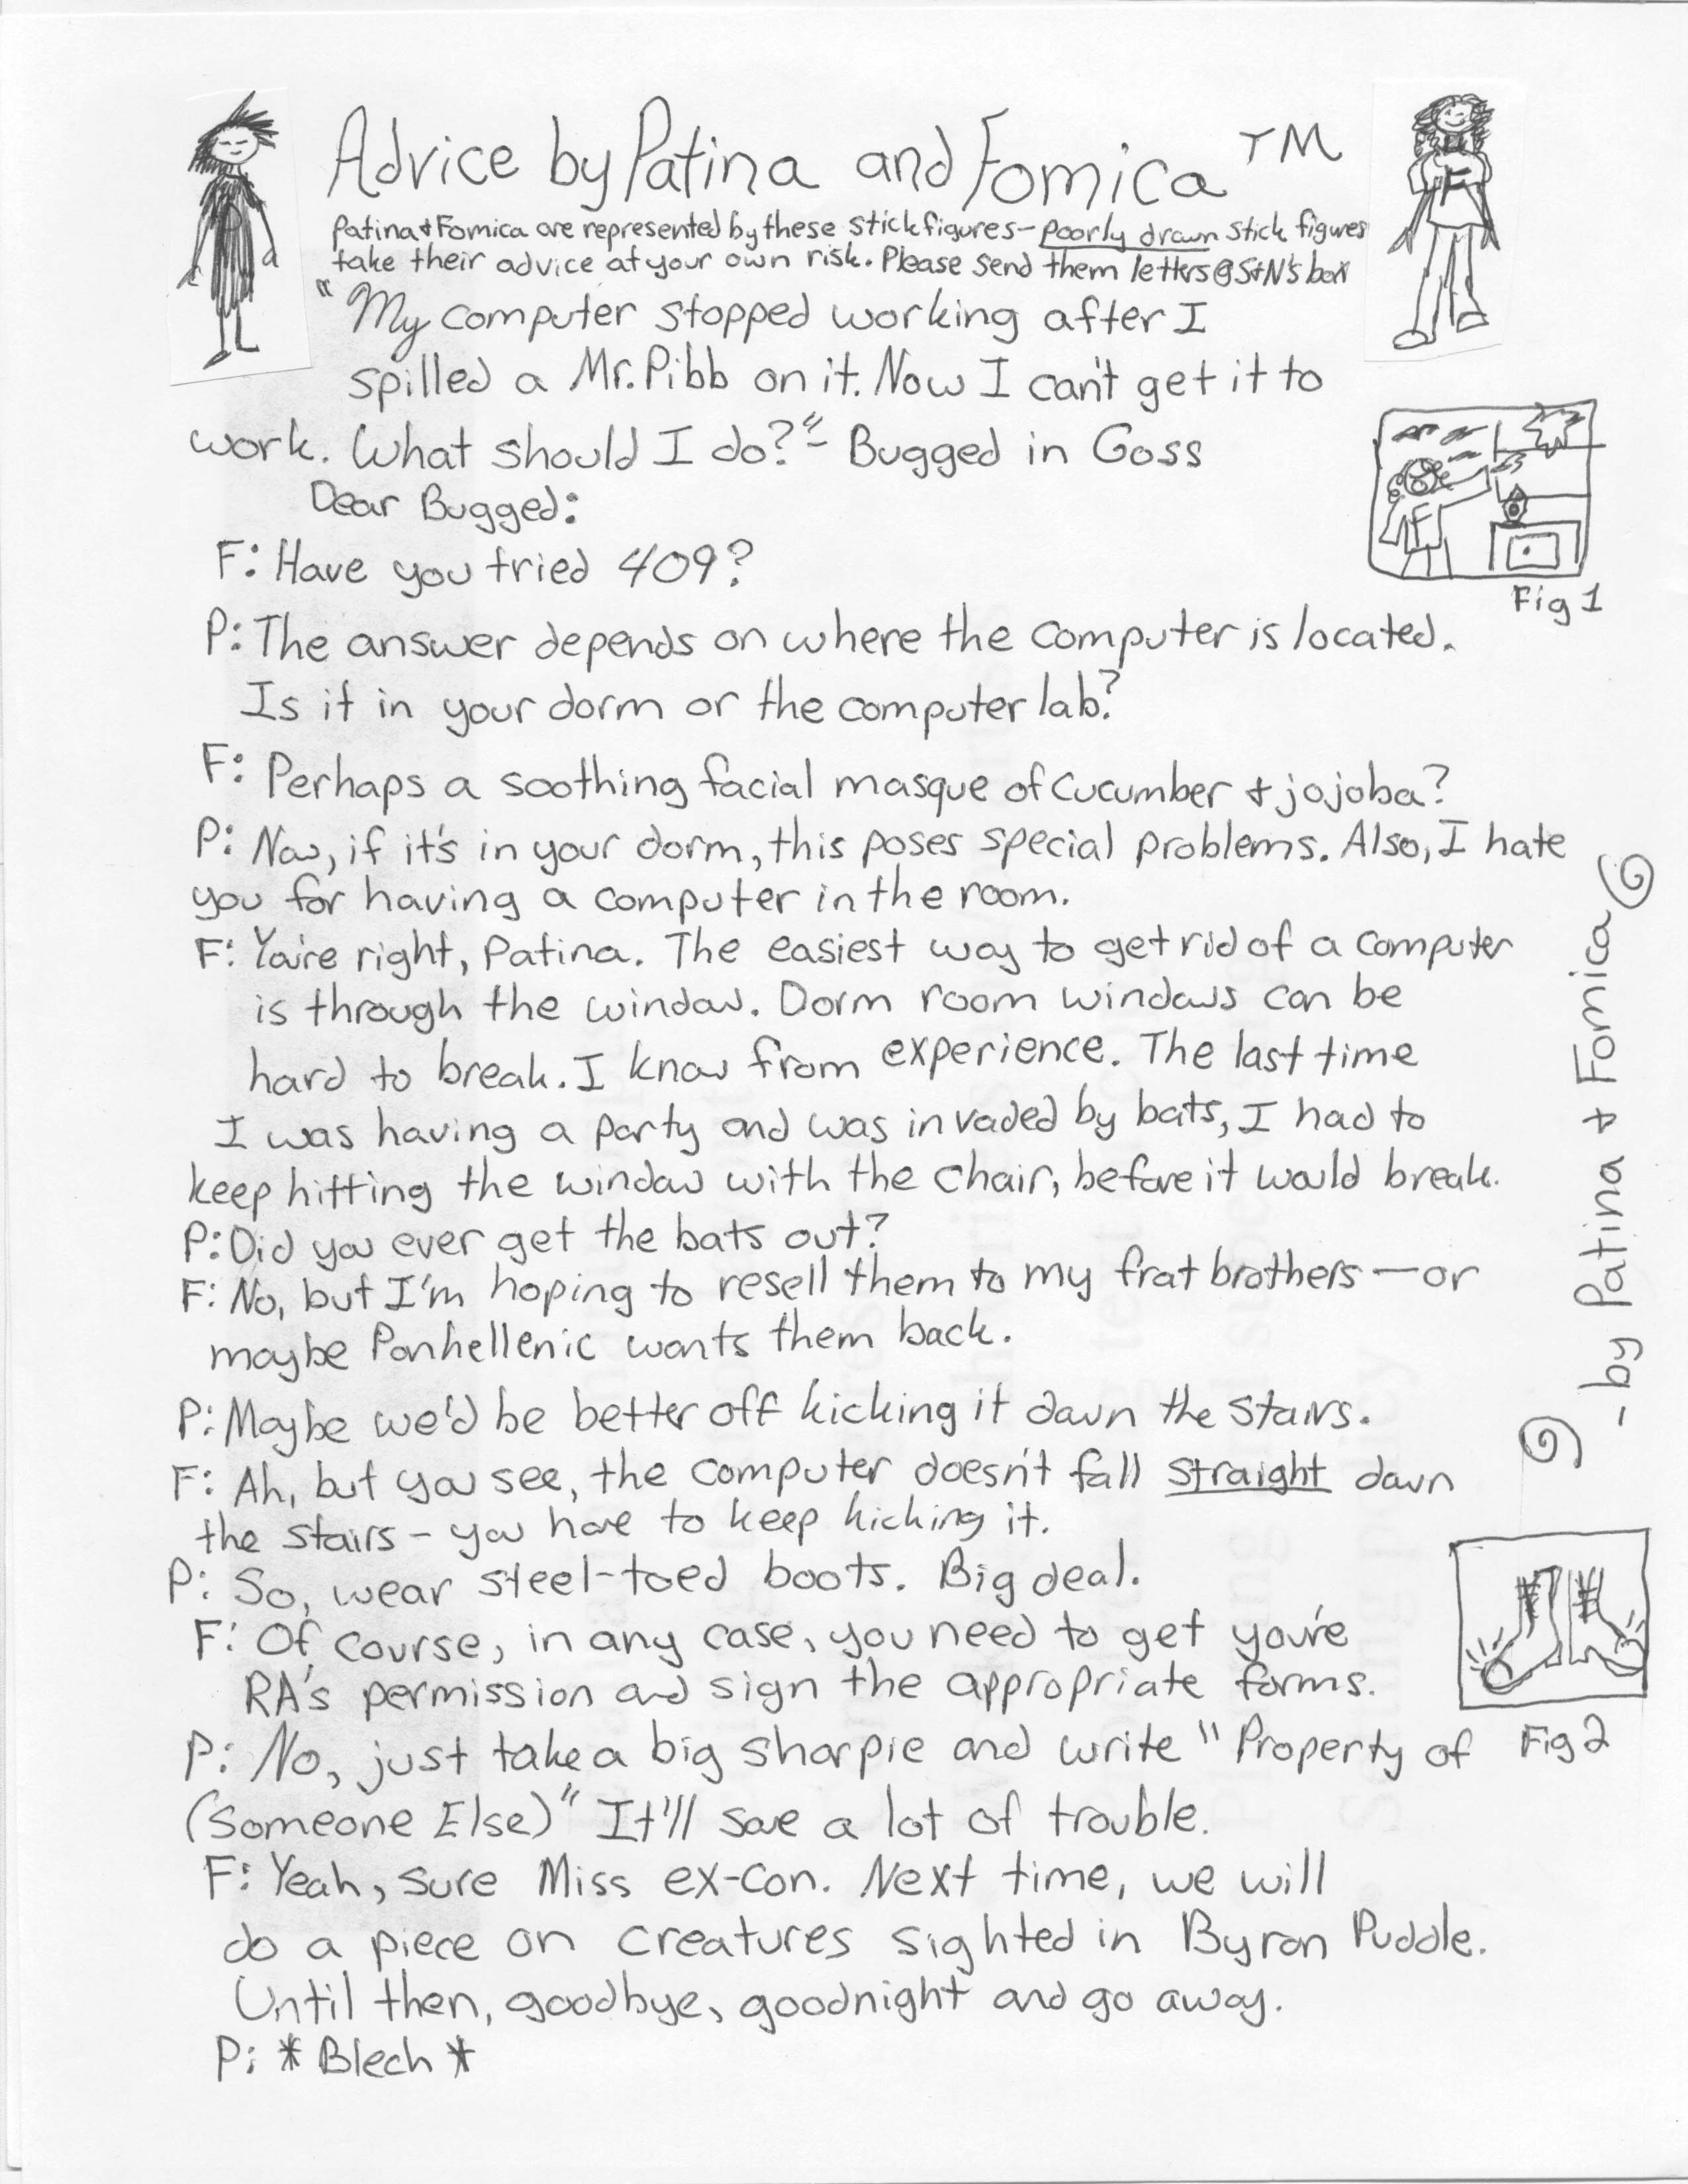 Advice by Patina and Fomica TM
Patina & Fomica are represented by these stick figures - poorly drawn stick figures
take their advice at your own risk. Please send them letters @ S+N's box
"My computer stopped working after I
spilled a Mr. Pibb on it. Now I can't get it to
work. What should I do?" - Bugged in Goss
Dear Bugged:
F: Have you tried 409?
Fig 1
P: The answer depends on where the computer is located.
Is it in your dorm or the computer lab?
F: Perhaps a soothing facial masque of cucumber & jojoba?
P: Now, if it's in your dorm, this poses special problems. Also, I hate
you for having a computer in the room.
F: You're right, Patina. The easiest way to get rid of a computer
is through the window. Dorm room windows can be
hard to break. I know from experience. The last time
I was having a party and was invaded by bats, I had to
keep hitting the window with the chair, before it would break.
P: Did you ever get the bats out?
F: No, but I'm hoping to resell them to my frat brothers — or
maybe Panhellenic wants them back.
P: Maybe we'd be better off kicking it down the stairs.
F: Ah, but you see, the computer doesn't fall straight down
the stairs - you have to keep kicking it.
P: So, wear steel-toed boots. Big deal.
F: Of course, in any case, you need to get you're
RA's permission and sign the appropriate forms.
P: No, just take a big sharpie and write "Property of
(Someone Else)" It'll save a lot of trouble.
Fig 2
F: Yeah, sure Miss ex-con. Next time, we will
do a piece on creatures sighted in Byron Puddle.
Until then, goodbye, goodnight and go away.
P: *Blech*
- by Patina & Fomica